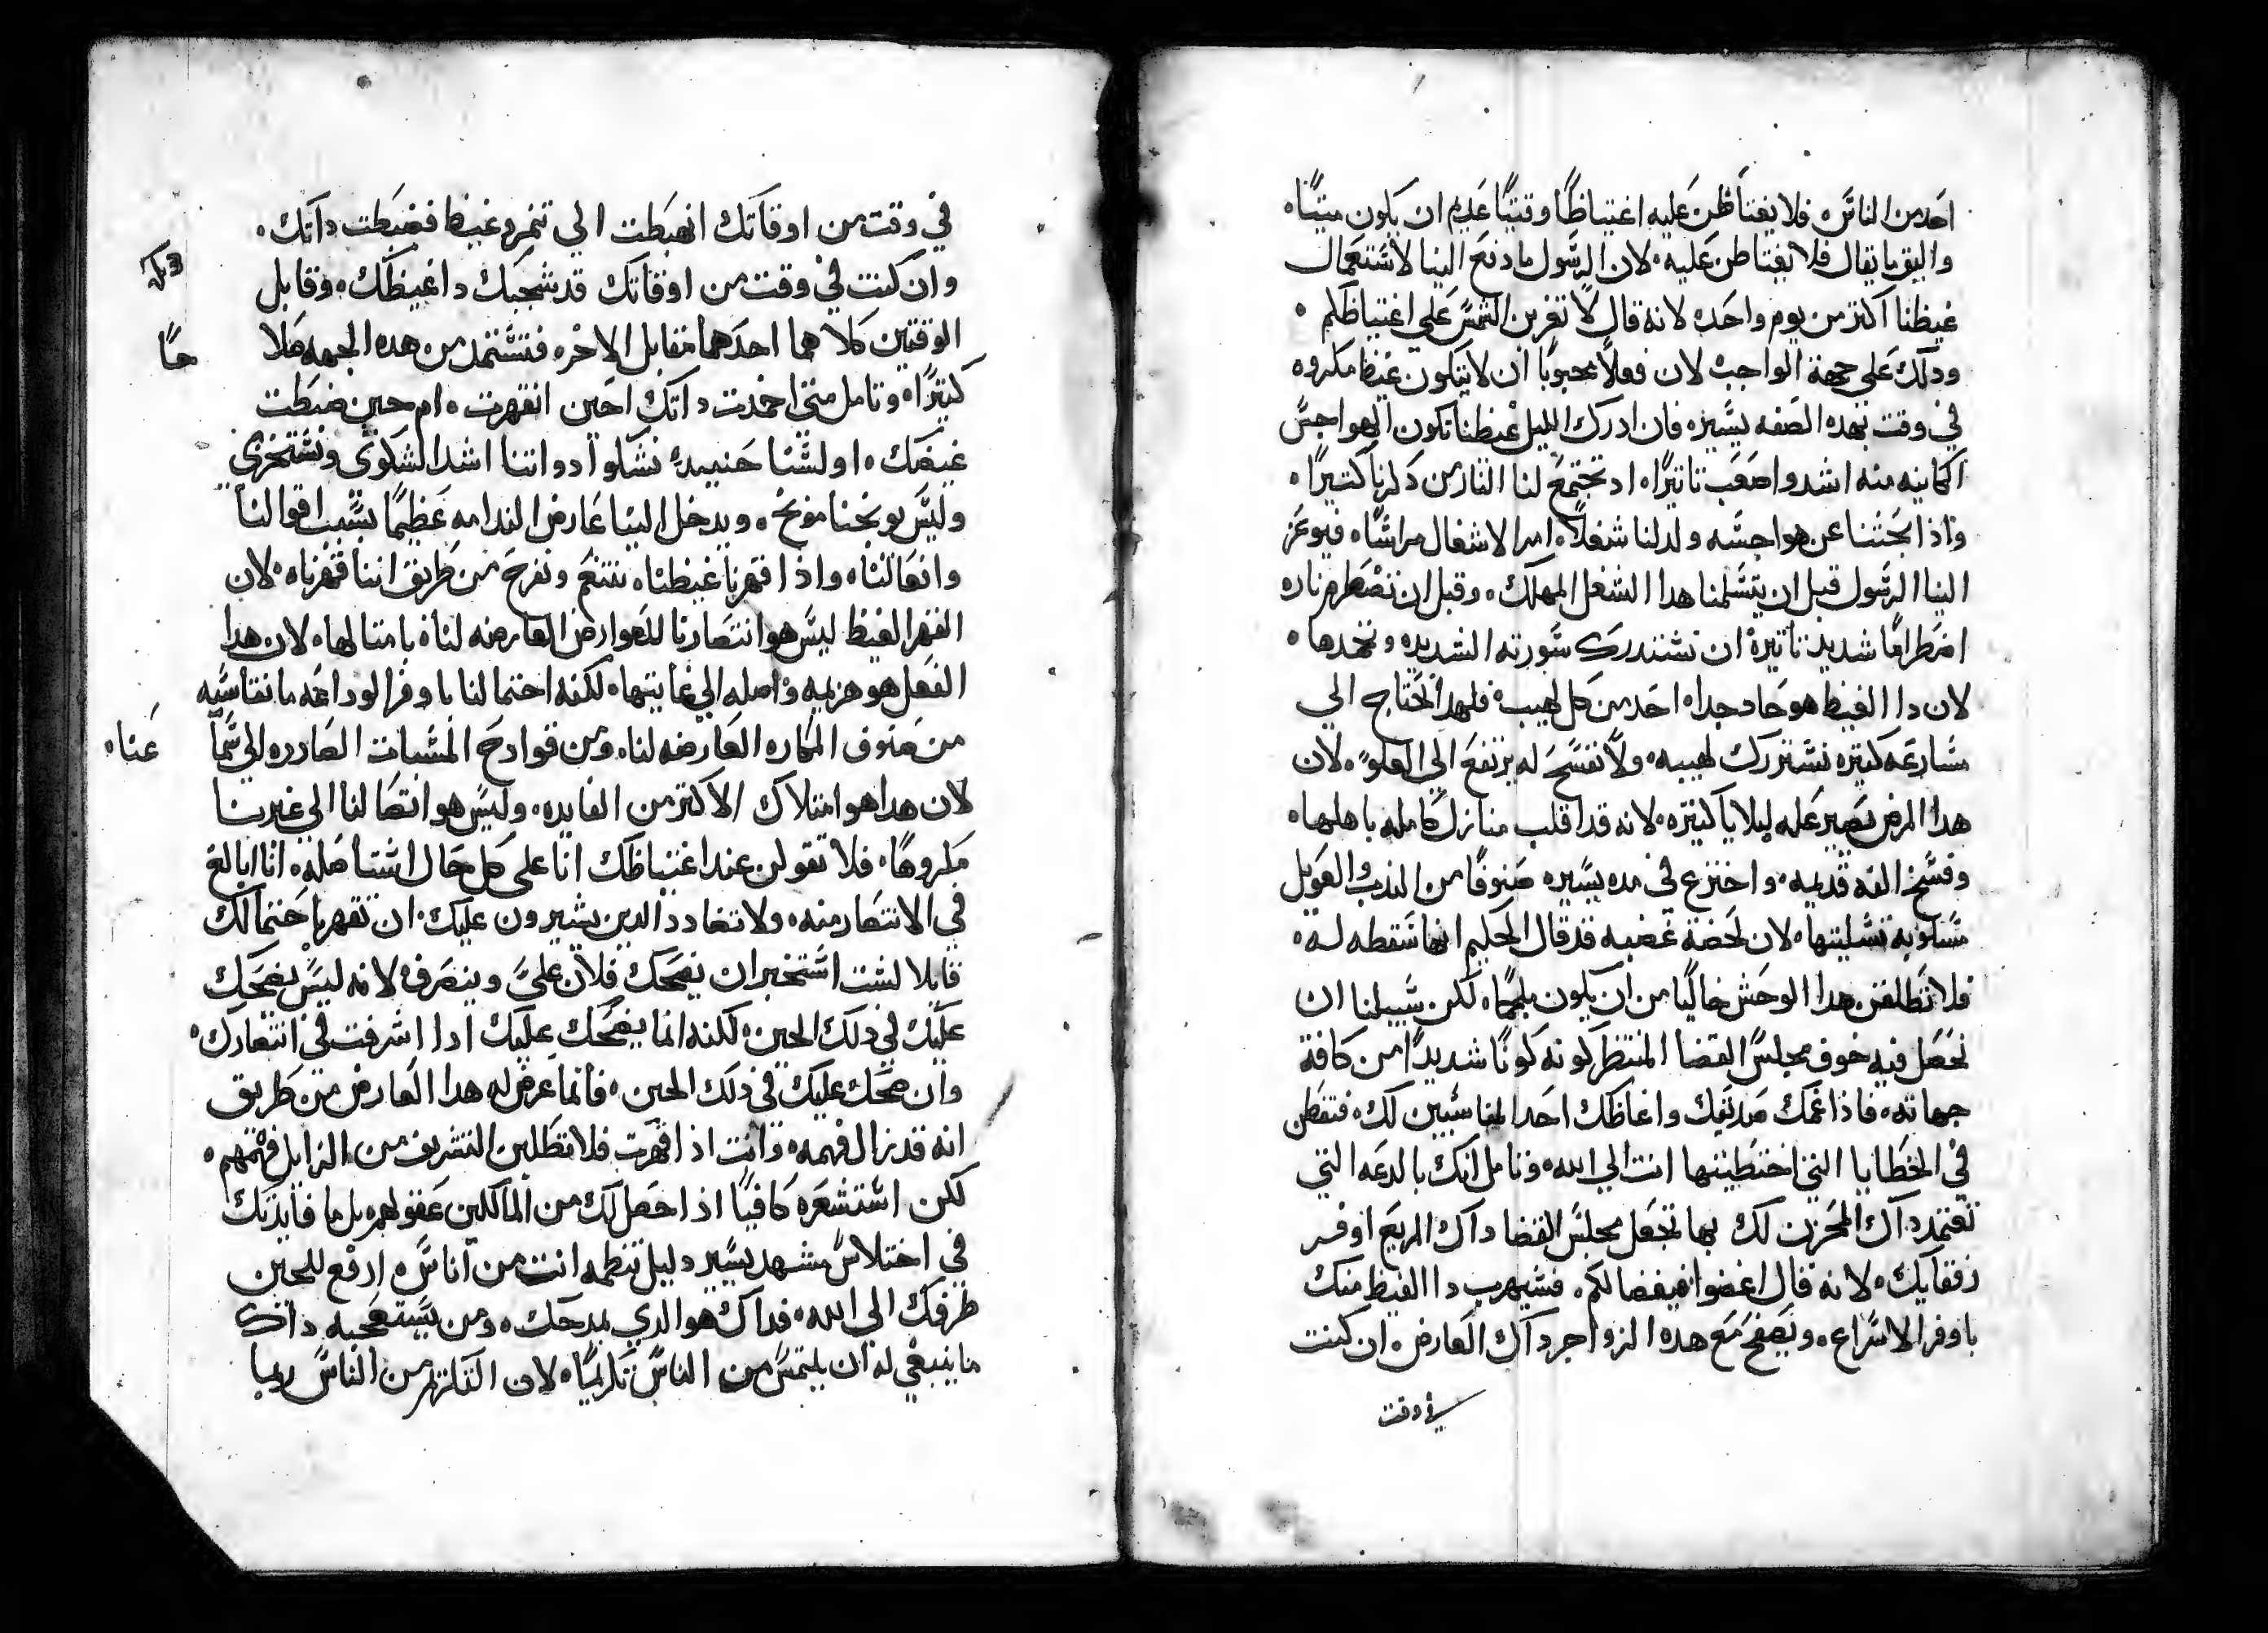 احد من الناس فلا يغتاظن عليه اغتياظًا وقتيًا عديم ان يكون ميتًاه
واليق ما يقال فلا يغتاظن عليه لان الرسول ما دفع الينا لاستعمال
غيظنا اكتر من يوم واحده لانه قال لا تغربن الشمس علي اغتياظكم ه
ودلك علي جهة الواجب لان فعلاً محبوبًا ان لا يتكون غيظ مكروه
في وقت بهده الصفه يسيره فان ادرك الليل غيظنا تكون الهواجس
الكاينه منه اشد واصعب تاتيرًاه اد تجتمع لنا النار من دكرنا كتيرًا ه
واذا بحتنا عن هواجسه ولد لنا شغلاً امر الاشغال مراسًا فيوعز
الينا الرسول قبل ان يتسلمنا هدا الشغل المهلك وقبل ان تضطرم ناره
اضطرامًا شديد تاتيره ان نستدرك سورته الشديده ونخمدها ه
لان دا الغيظ هو حاد جداه احد من كل لهيب فلهدا نحتاج الي
مسارعه كتيره نستدرك لهيبه ولا نفسح له يرتفع الي العلو لان
هدا المرض يصير عله لبلايا كتيره لانه قد اقلب منازل كامله باهلها ه
وفسخ الفه قديمه واخترع في مده يسيره صنوفًا من الندب والعويل
مسلوبه تسليتها لان لحضة غضبه قد قال الحكيم انها سقطه له ه
فلا تطلقن هدا الوحش خاليًا من ان يكون ملجمًا لكن سبيلنا ان
نحصل فيه خوف مجلس القضا المنتظر كونه كونًا شديدًا من كافة
جهاته فاذا غمك صديقك واغاظك احد المناسبين لك فتفطن
في الخطايا التي اختطيتها انت الي الله وتامل انك بالدعه التي
تعتمد داك المحزن لك بها تجعل مجلس القضا داك المريع اوفر
رفقا بك لانه قال اغضوا فيغضا لكم فسيهرب دا الغيظ منك
باوفر الاسراع وتصفح مع هده الزواجر داك العارض ان كنت
في وقت
في وقت من اوقاتك انهبطت الي تنمر وغيظ فضبطت داتك ه
وان كنت في وقت من اوقاتك قد سحبك دا غيظك وقابل
الوقتين كلاهما احدهما مقابل الاخره فتستمد من هده الجهه صلاحًا
كتيرًاه وتامل متي احمدت داتك احين انقهرت ام حين ضبطت
غيضك ه اولسنا حينيدٍ نشكوا دواتنا اشد الشكوي ونستخزي
وليس يوبخنا موبخ ويدخل الينا عارض الندامه عظيمًا بسبب اقوالنا
وافعالنا واذا قهرنا غيظنا نتنعم ونفرح من طريق اننا قهرناه لان
القهر الغيظ ليس هو انتصارنا للعوارض العارضه لناه بامتالها لان هدا
الفعل هو هزيمه واصله الي غايتها لكنه احتمالنا باوفر الوداعه ما نقاسيه
من صنوف المكاره العارضه لنا ومن فوادح المسبات الصادره الي سماعناه
لان هدا هو امتلاك الاكتر من الفايده وليس هو انتصالنا الي غيرنا
مكروهًا فلا تقولن عند اغتياظك انا علي كل حال استاصله انا ابالغ
في الانتصار منه ولا تضادد الدين يشيرون عليك ان تقهر باحتمالك
قايلا لست استخير ان يضحك فلان علي وينصرف لانه ليس يضحك
عليك في دلك الحين لكنه انما يضحك عليك ادا اسرفت في انتصارك ه
وان ضحك عليك في ذلك الحين فانما عرض له هدا العارض من طريق
انه قد زال فهمه وانت اذا قهرت فلا تطلبن التشريف من الزايل فهمهم ه
لكن استشعره كافيًا اذا حصل لك من المالكين عقولهم بل ما فايدتك
في اختلاس مشهد يسير دليل تنظمه انت من اناس ارفع للحين
طرفك الي الله فداك هو الدي يمدحك ومن يستصحبه داك
ما ينبغي له ان يلتمس من الناس تكريمًا لان التكرم من الناس ربما